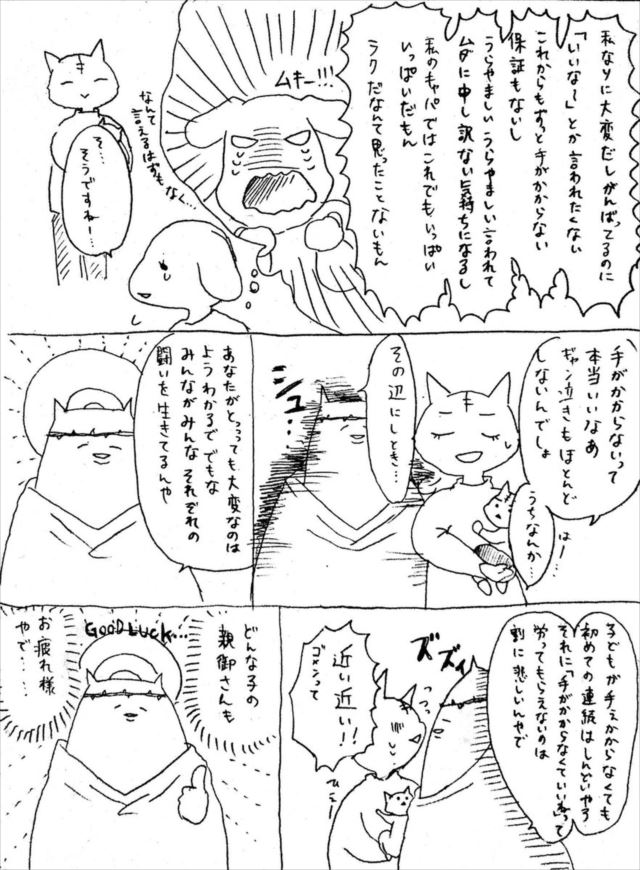 私なりに大変だしがんばってるのに
「いいな〜」とか言われたくない
これからもずっと手がかからない
保証もないし
うらやましいうらやましい言われて
ムダに申し訳ない気持ちになるし
私のキャパではこれでもいっぱい
いっぱいだもん
ラクだなんて思ったことないもん
ムキー!!!
なんて
言えるはずもなく…
そ…
そうですねー…
手がかからないって
本当いいなぁ
ギャン泣きもほとんど
しないんでしょ
はー
うちなんか…
その辺にしとき…
シュ…
あなたがとっっっても大変なのは
ようわかるで でもな
みんながみんな それぞれの
闘いを生きてるんや
子どもが手えかからなくても
初めての連続はしんどいやろ
それに「手がかからなくていいね」って
労ってもらえないのは
割に悲しいんやで
ズズィ
っっっ
近い近い!!
ゴメンって
ひぇー
どんな子の
親御さんも
GOOD LUCK…
お疲れ様
やで……